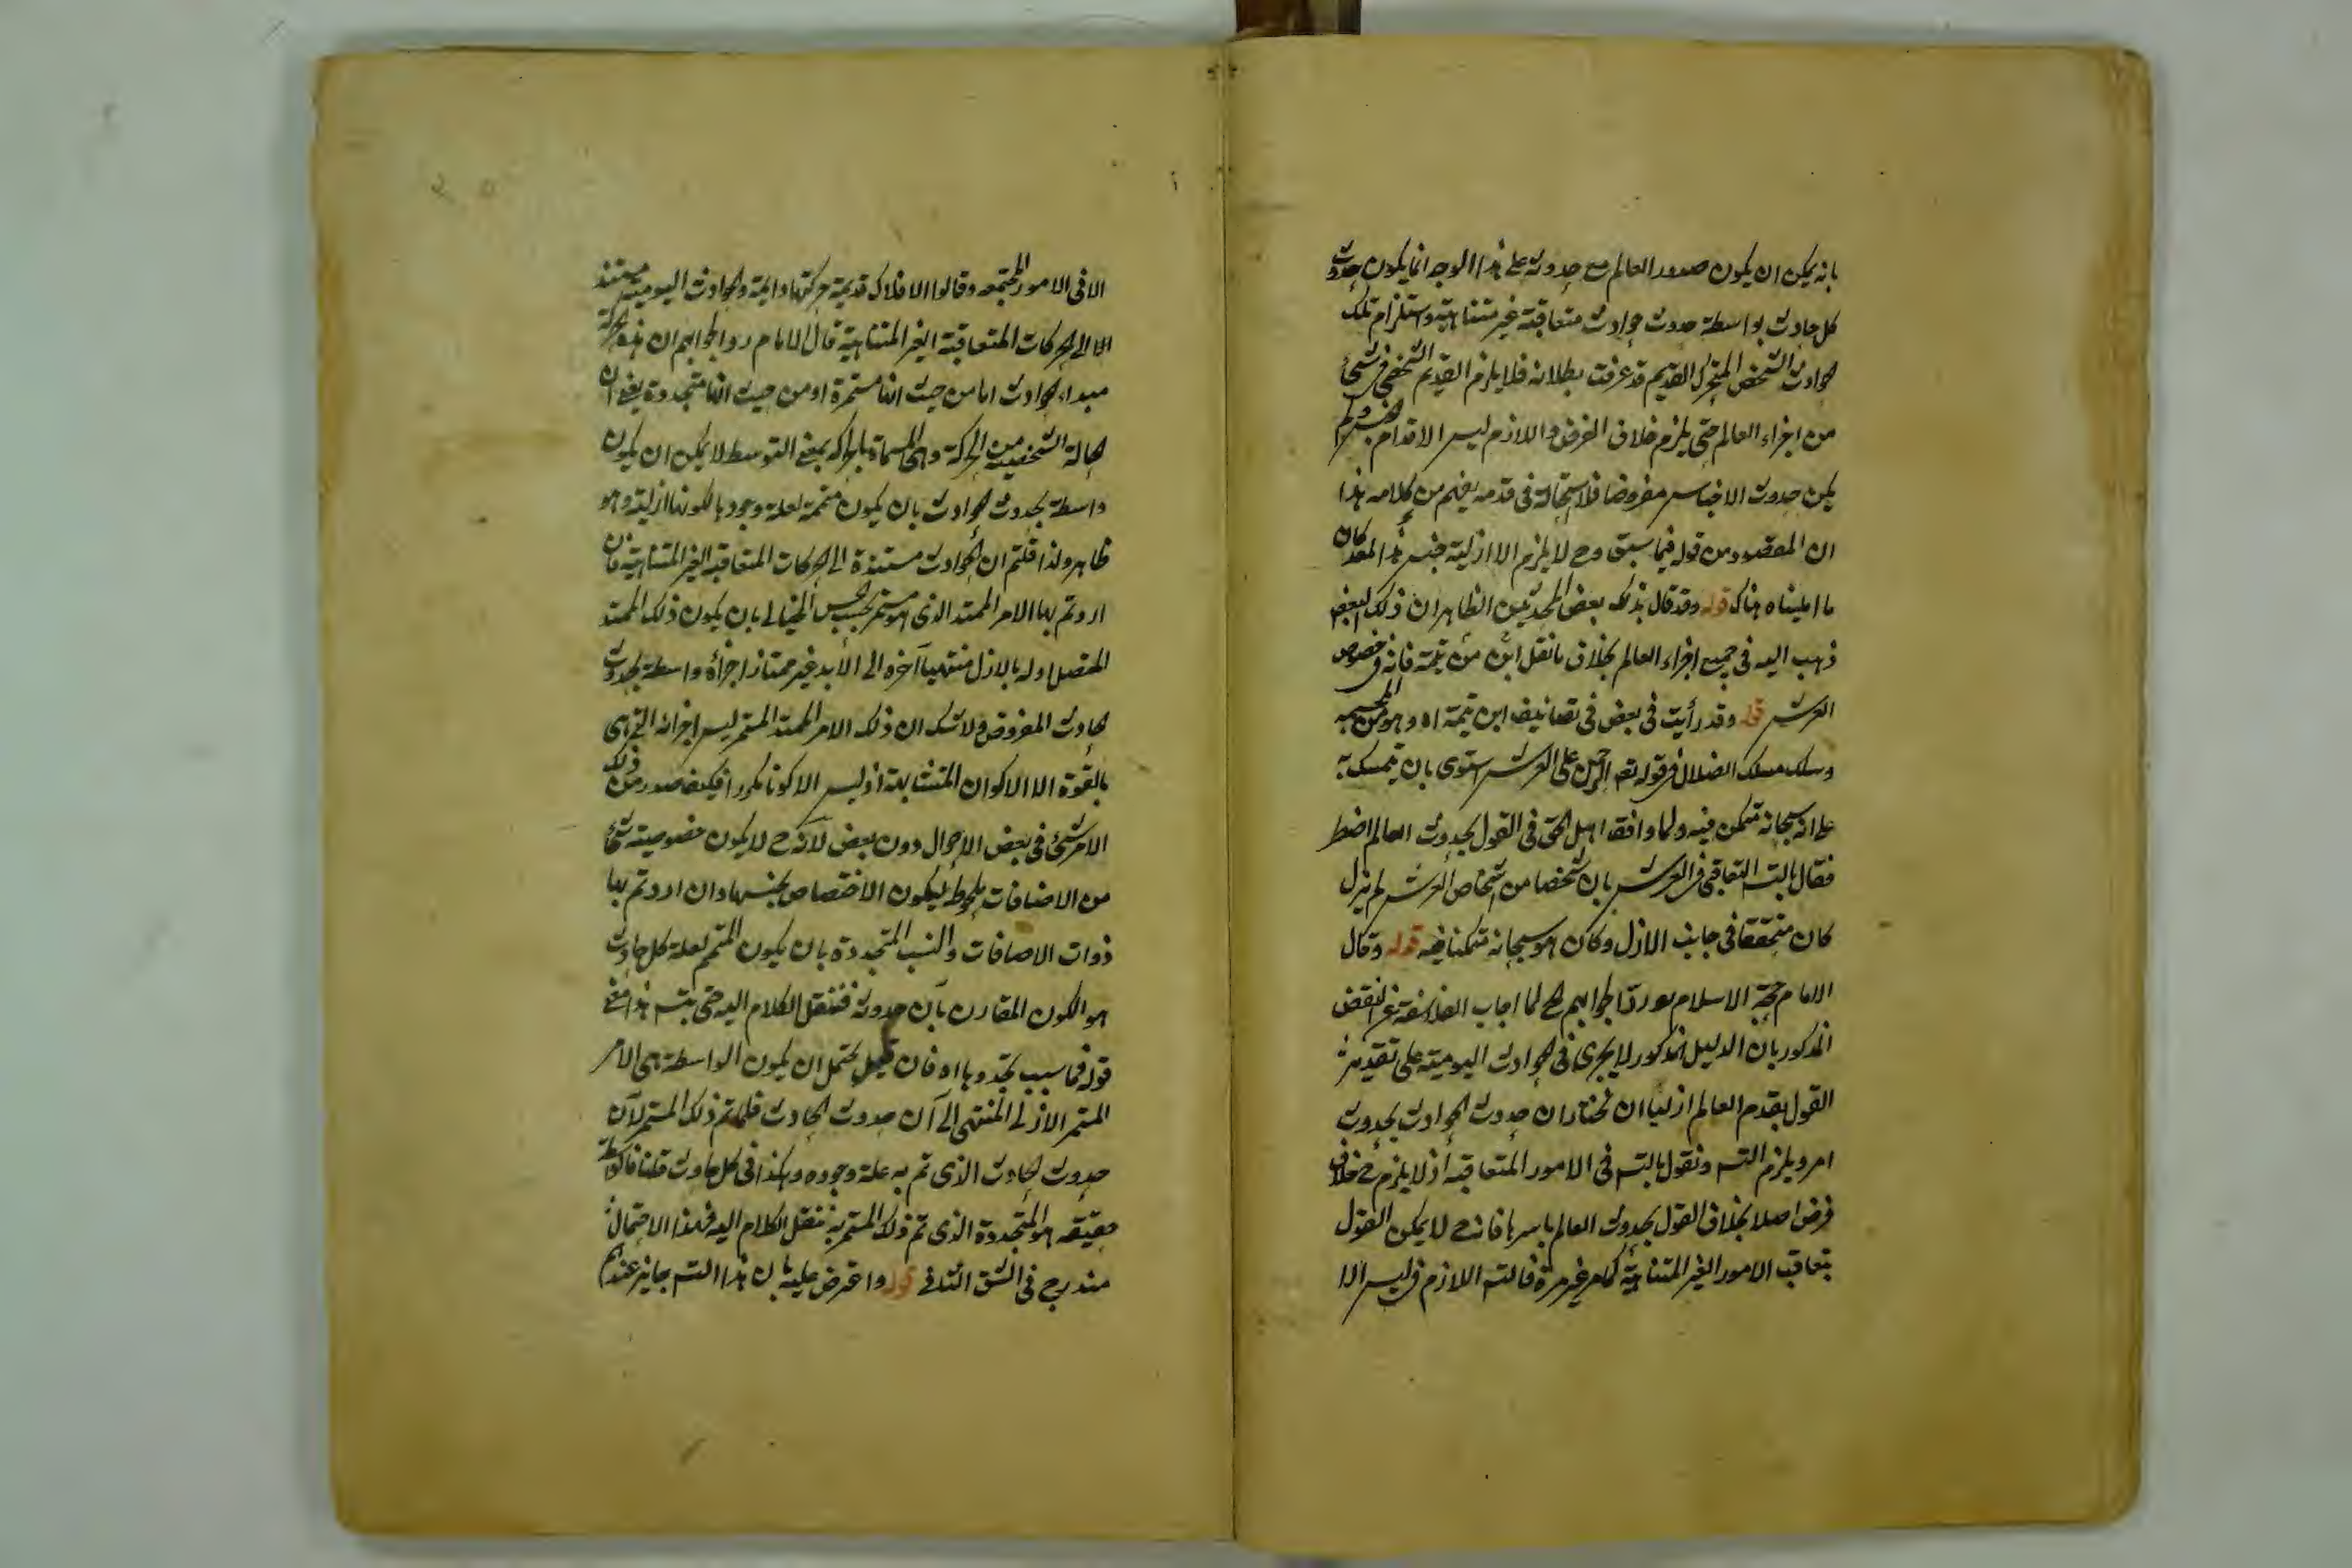 بانه يمكن ان يكون صدور العالم مع حدوثه على هذا الوجه انما يكون حدوث
كل حادث بواسطة حدوث حوادث متعاقبة غير متناهية واستلزام تلك
الحوادث الشخص المتحرك القديم قد عرفت بطلانه فلا يلزم القديم الشخصي في شئ
من اجزاء العالم حتى يلزم خلاف الفرض واللازم ليس الا قدام
يكن حدوث الاجناس مفروضا فلا استحالة في قدمه يفهم من كلامه هذا
ان المقصود من قوله فيما سبق وح لا يلزم الا ازلية جنس هذا المعد كان
ما امليناه هناك قوله وقد قال بذلك بعض المحدثين الظاهر ان ذلك البعض
ذهب اليه في جميع اجزاء العالم بخلاف ما نقل ابن من تيمية فانه في خصوص
العرش قوله وقد رأيت في بعض في تصانيف ابن تيمة اه وهو من المجسمه
وسلك مسلك الضلال في قوله تعه الرحمن على العرش استوى بان يتمسك به
على انه سبحانه متمكن فيه ولما وافقه اهل الحق في القول بحدوث العالم اضطر
فقال بالتس التعاقبي في العرش بان شخصا من اشخاص العرش لم يزل
كان متحققا في جانب الازل وكان هو سبحانه متمكنا فيه قوله وقال
الامام حجة الاسلام مورد الجوابهم لح لما اجاب الفلاسفة عن النقض
المذكور بان الدليل المذكور لا يجرى في الحوادث اليومية على تقدير
القول بقدم العالم ازليا ان نختار ان حدوث الحوادث بحدوث
امر ويلزم التس ونقول بالتس في الامور المتعاقبة اذ لا يلزم ح خلاف
فرض اصلا بخلاف القول بحدوث العالم باسرها فانه ح لا يمكن القول
بتعاقب الامور الغير المتناهية كما مر غير مرة فالتس اللازم ليس الا
الا في الامور المجتمعه وقالوا الافلاك قديمة حركتها دائمة والحوادث اليومية مستند
الا الى الحركات المتعاقبة الغير المتناهية قال الامام رد الجوابهم ان هذه الحركة
مبداء الحوادث اما من حيث انها مستمرة او من حيث انها متجددة يعنى ان
الحالة الشخصية من الحركة وهى المسماة بالحركة بمعنى التوسط لا يمكن ان يكون
واسطة بحدوث الحوادث بان يكون متممة لعلة وجودها لكونها ازلية وهو
ظاهر ولذا قلتم ان الحوادث مستندة الى الحركات المتعاقبة الغير المتناهية فان
اردتم بها الامر الممتد الذى هو مستمر بحسب الحس الخيالى بان يكون ذلك الممتد
المتصل اوله بالازل منتهيا آخره الى الأبد غير ممتاز اجزأه واسطة بحدوث
الحادث المفروض ولا شك ان ذلك الامر الممتد المستمر ليس اجزائه التى هى
بالقوة الا الاكوان المتشابهة اذ ليس الا كونا مكررا فكيف صدور من ذلك
الامر شئ في بعض الاحوال دون بعض لانه ح لا يكون خصوصيته شئ
من الاضافات ملحوظا ليكون الاختصاص بحسبها وان اردتم بها
ذوات الاضافات والنسب المتجددة بان يكون المتمم لعلة كل حادث
هو الكون المقارن بآن حدوثه فننقل الكلام اليه حتى يتس هذا معنى
قوله فما سبب تجددها اه فان قيل يحتمل ان يكون الواسطة هى الامر
المستمر الازلى المنتهى الى آن حدوث الحادث فلما تم ذلك المستمر لآن
حدوث الحادث الذى تم به علة وجوده وهكذا في كل حادث قلنا فالواسطة
حقيقه هو المتجددة الذى تم ذلك المستمر به ننقل الكلام اليه فهذا الاحتمال
مندرج في الشق الثانى قوله واعترض عليه بان هذا التس جايز عندهم